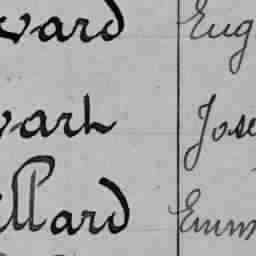 ward Eug
wart Jose
illard Emm